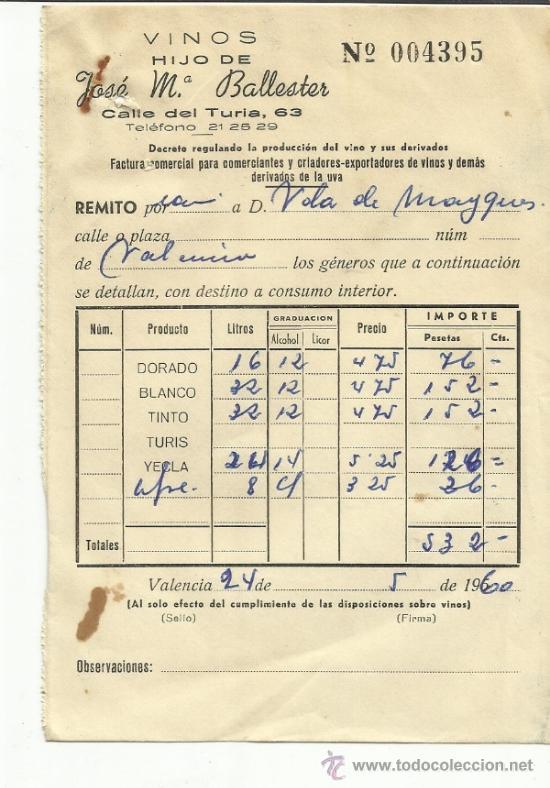 VINOS
HIJO DE
José M.ª Ballester
Calle del Turia, 63
Teléfono 21 25 29
Nº 004395
Decreto regulando la producción del vino y sus derivados
Factura comercial para comerciantes y criadores-exportadores de vinos y demás
derivados de la uva
REMITO por a D. Vda de Mayques.
calle o plaza núm
de Valencia los géneros que a continuación
se detallan, con destino a consumo interior.
Núm. Producto Litros GRADUACION Alcohol Licor Precio IMPORTE Pesetas Cts.
DORADO 16 12 4 75 76 -
BLANCO 32 12 4 75 152 -
TINTO 32 12 4 75 152 -
TURIS
YECLA 14 5'25 =
8 3 25 -
Totales 532 -
Valencia 24 de 5 de 1960
(Al solo efecto del cumplimiento de las disposiciones sobre vinos)
(Sello) (Firma)
Observaciones:
www.todocoleccion.net